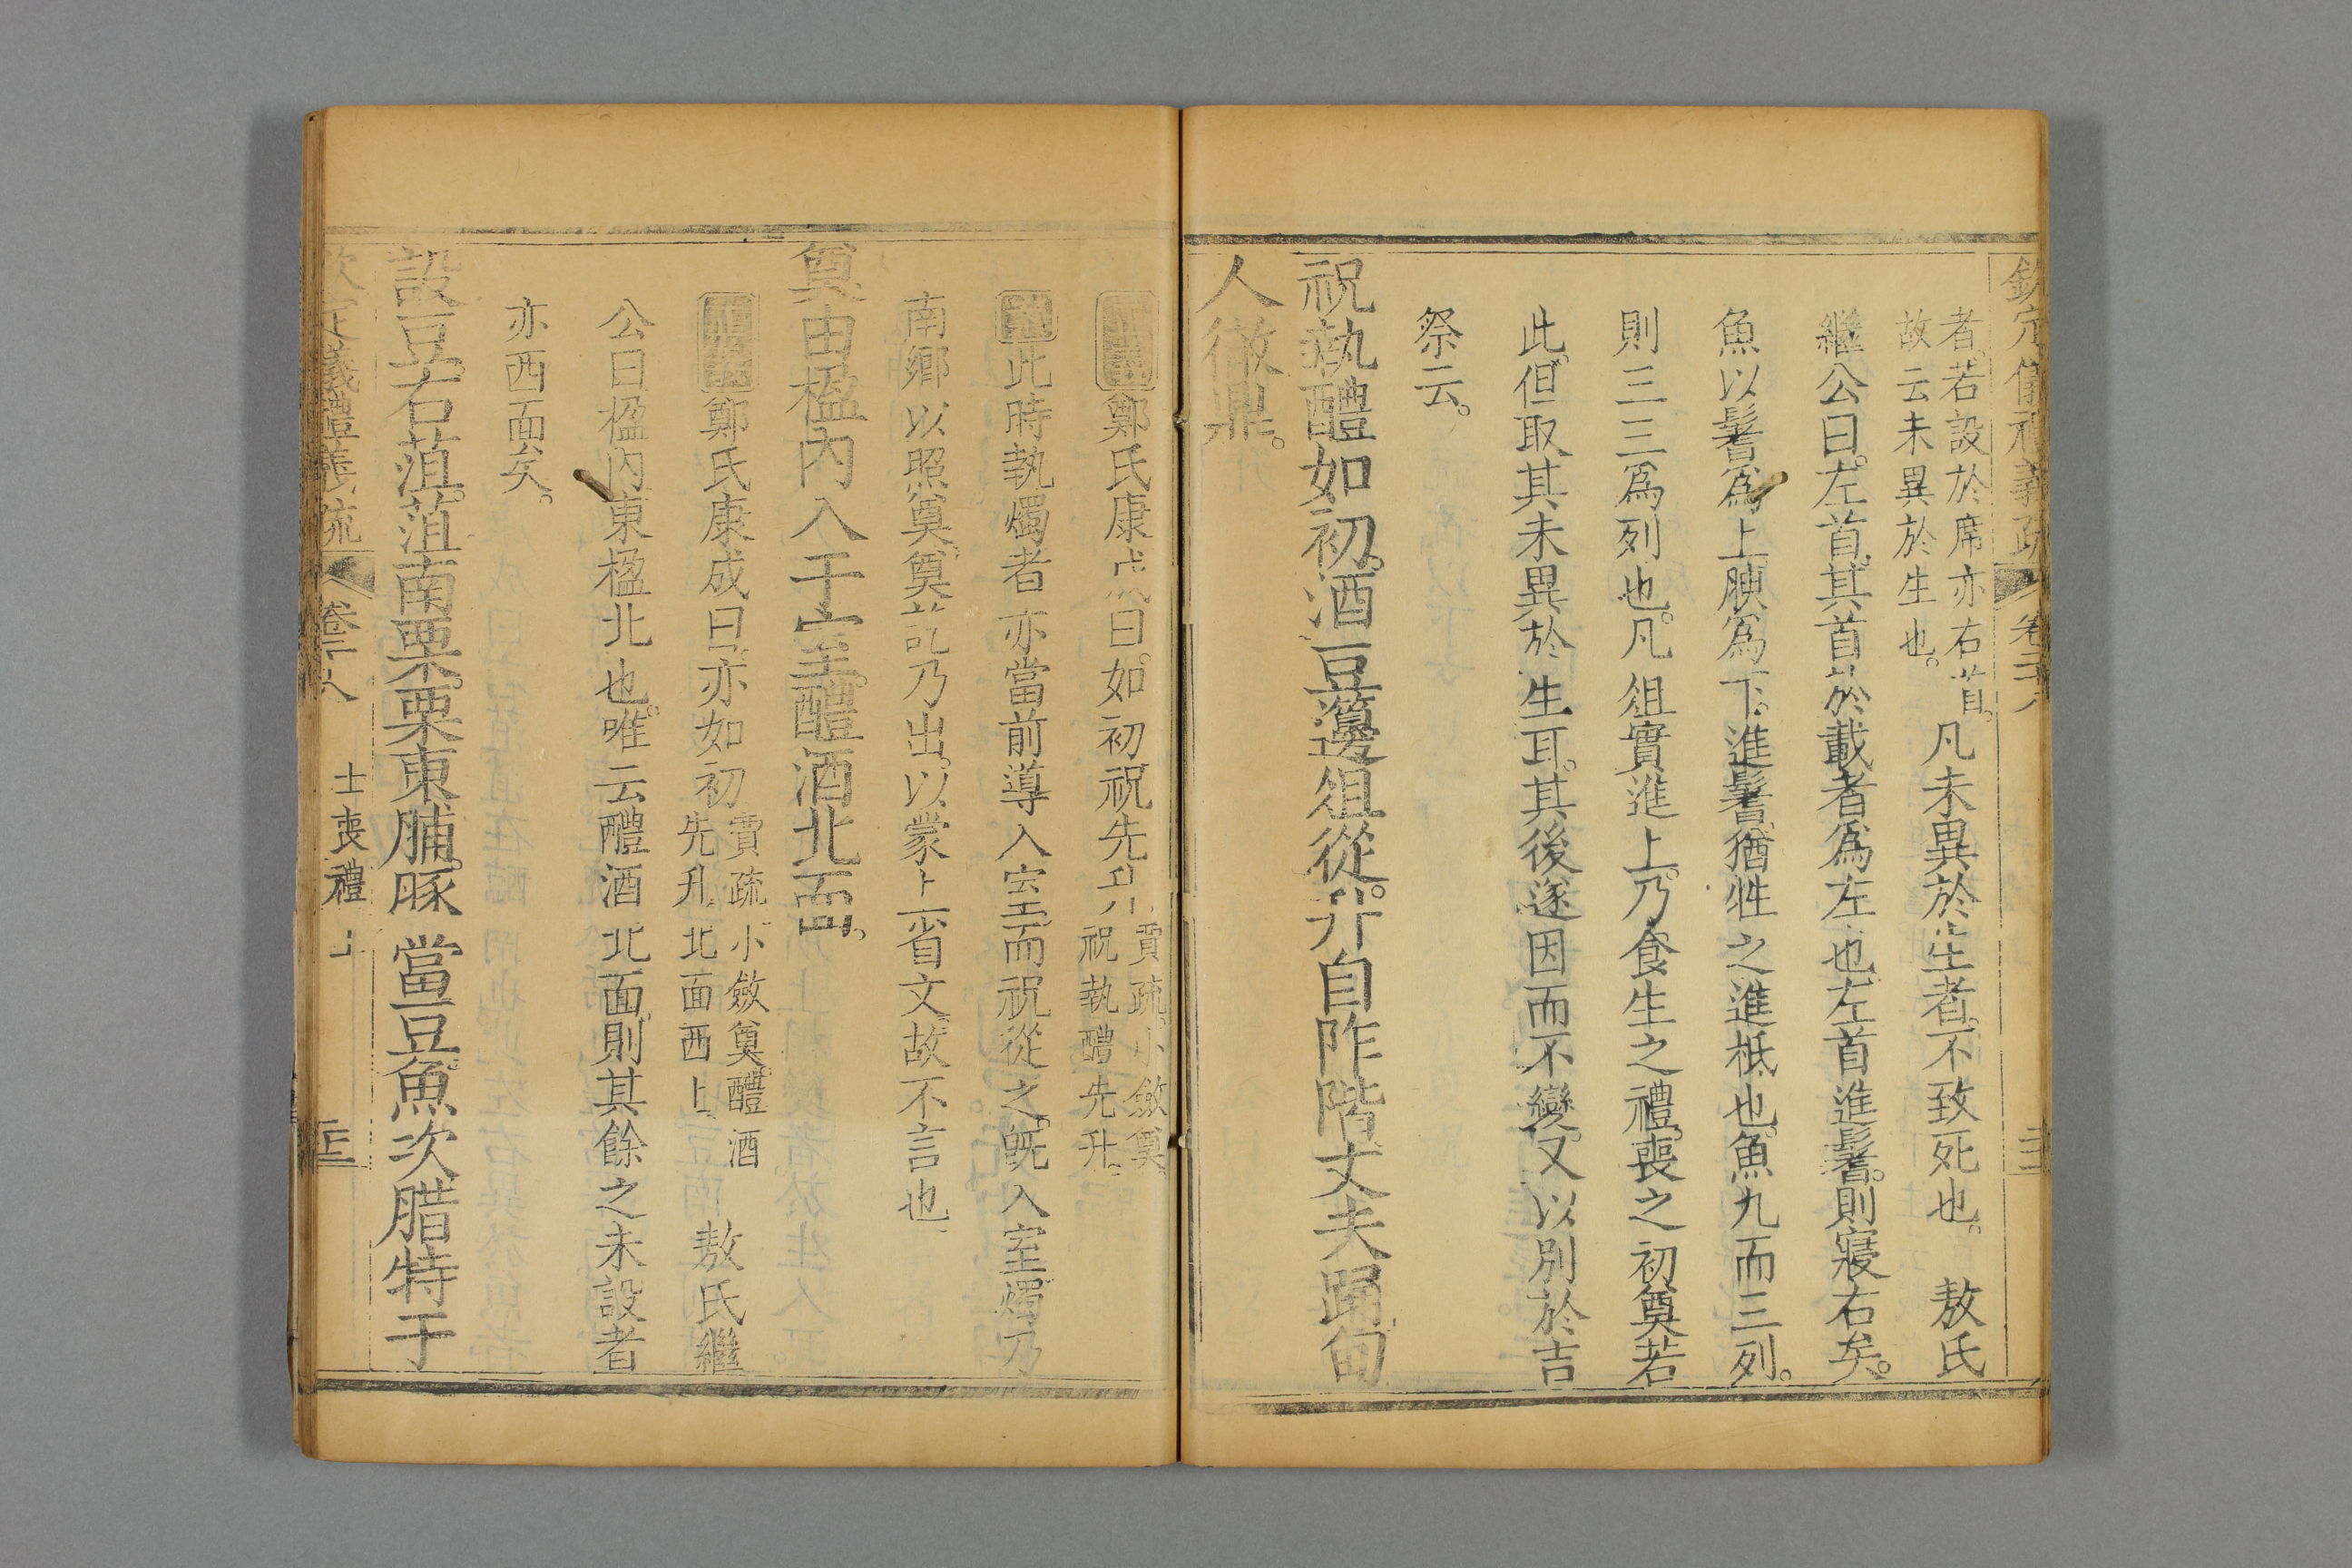 欽定儀禮義疏 卷二十八
者若設於席亦右首。
故云未異於生也。
凡未異於生者。不致死也。 敖氏
繼公曰。左首。其首於載者爲左也。左首進鬐。則寢右矣。
魚以鬐爲上。腴爲下。進鬐猶牲之進柢也。魚九而三列。
則三三爲列也。凡俎實進上。乃食生之禮。喪之初奠若
此。但取其未異於生耳。其後遂因而不變。又以別於吉
祭云。
祝執醴如初。酒豆籩俎從。升自阼階。丈夫踊。甸
人徹鼎。
鄭氏康成曰。如初。祝先升
賈疏。小斂奠
祝執醴先升。
此時執燭者亦當前導入室。而祝從之。旣入室。燭乃
南鄉以照奠。奠訖乃出。以蒙上省文。故不言也
奠由楹內入于室。醴酒北面。
鄭氏康成曰。亦如初
賈疏。小斂奠。醴酒
先升。北面西上
敖氏繼
公曰。楹內。東楹北也。唯云醴酒北面。則其餘之未設者
亦西面矣。
設豆。右菹。菹南栗。栗東脯。豚當豆。魚次。腊特于
欽定儀禮義疏 卷二十八 士喪禮上